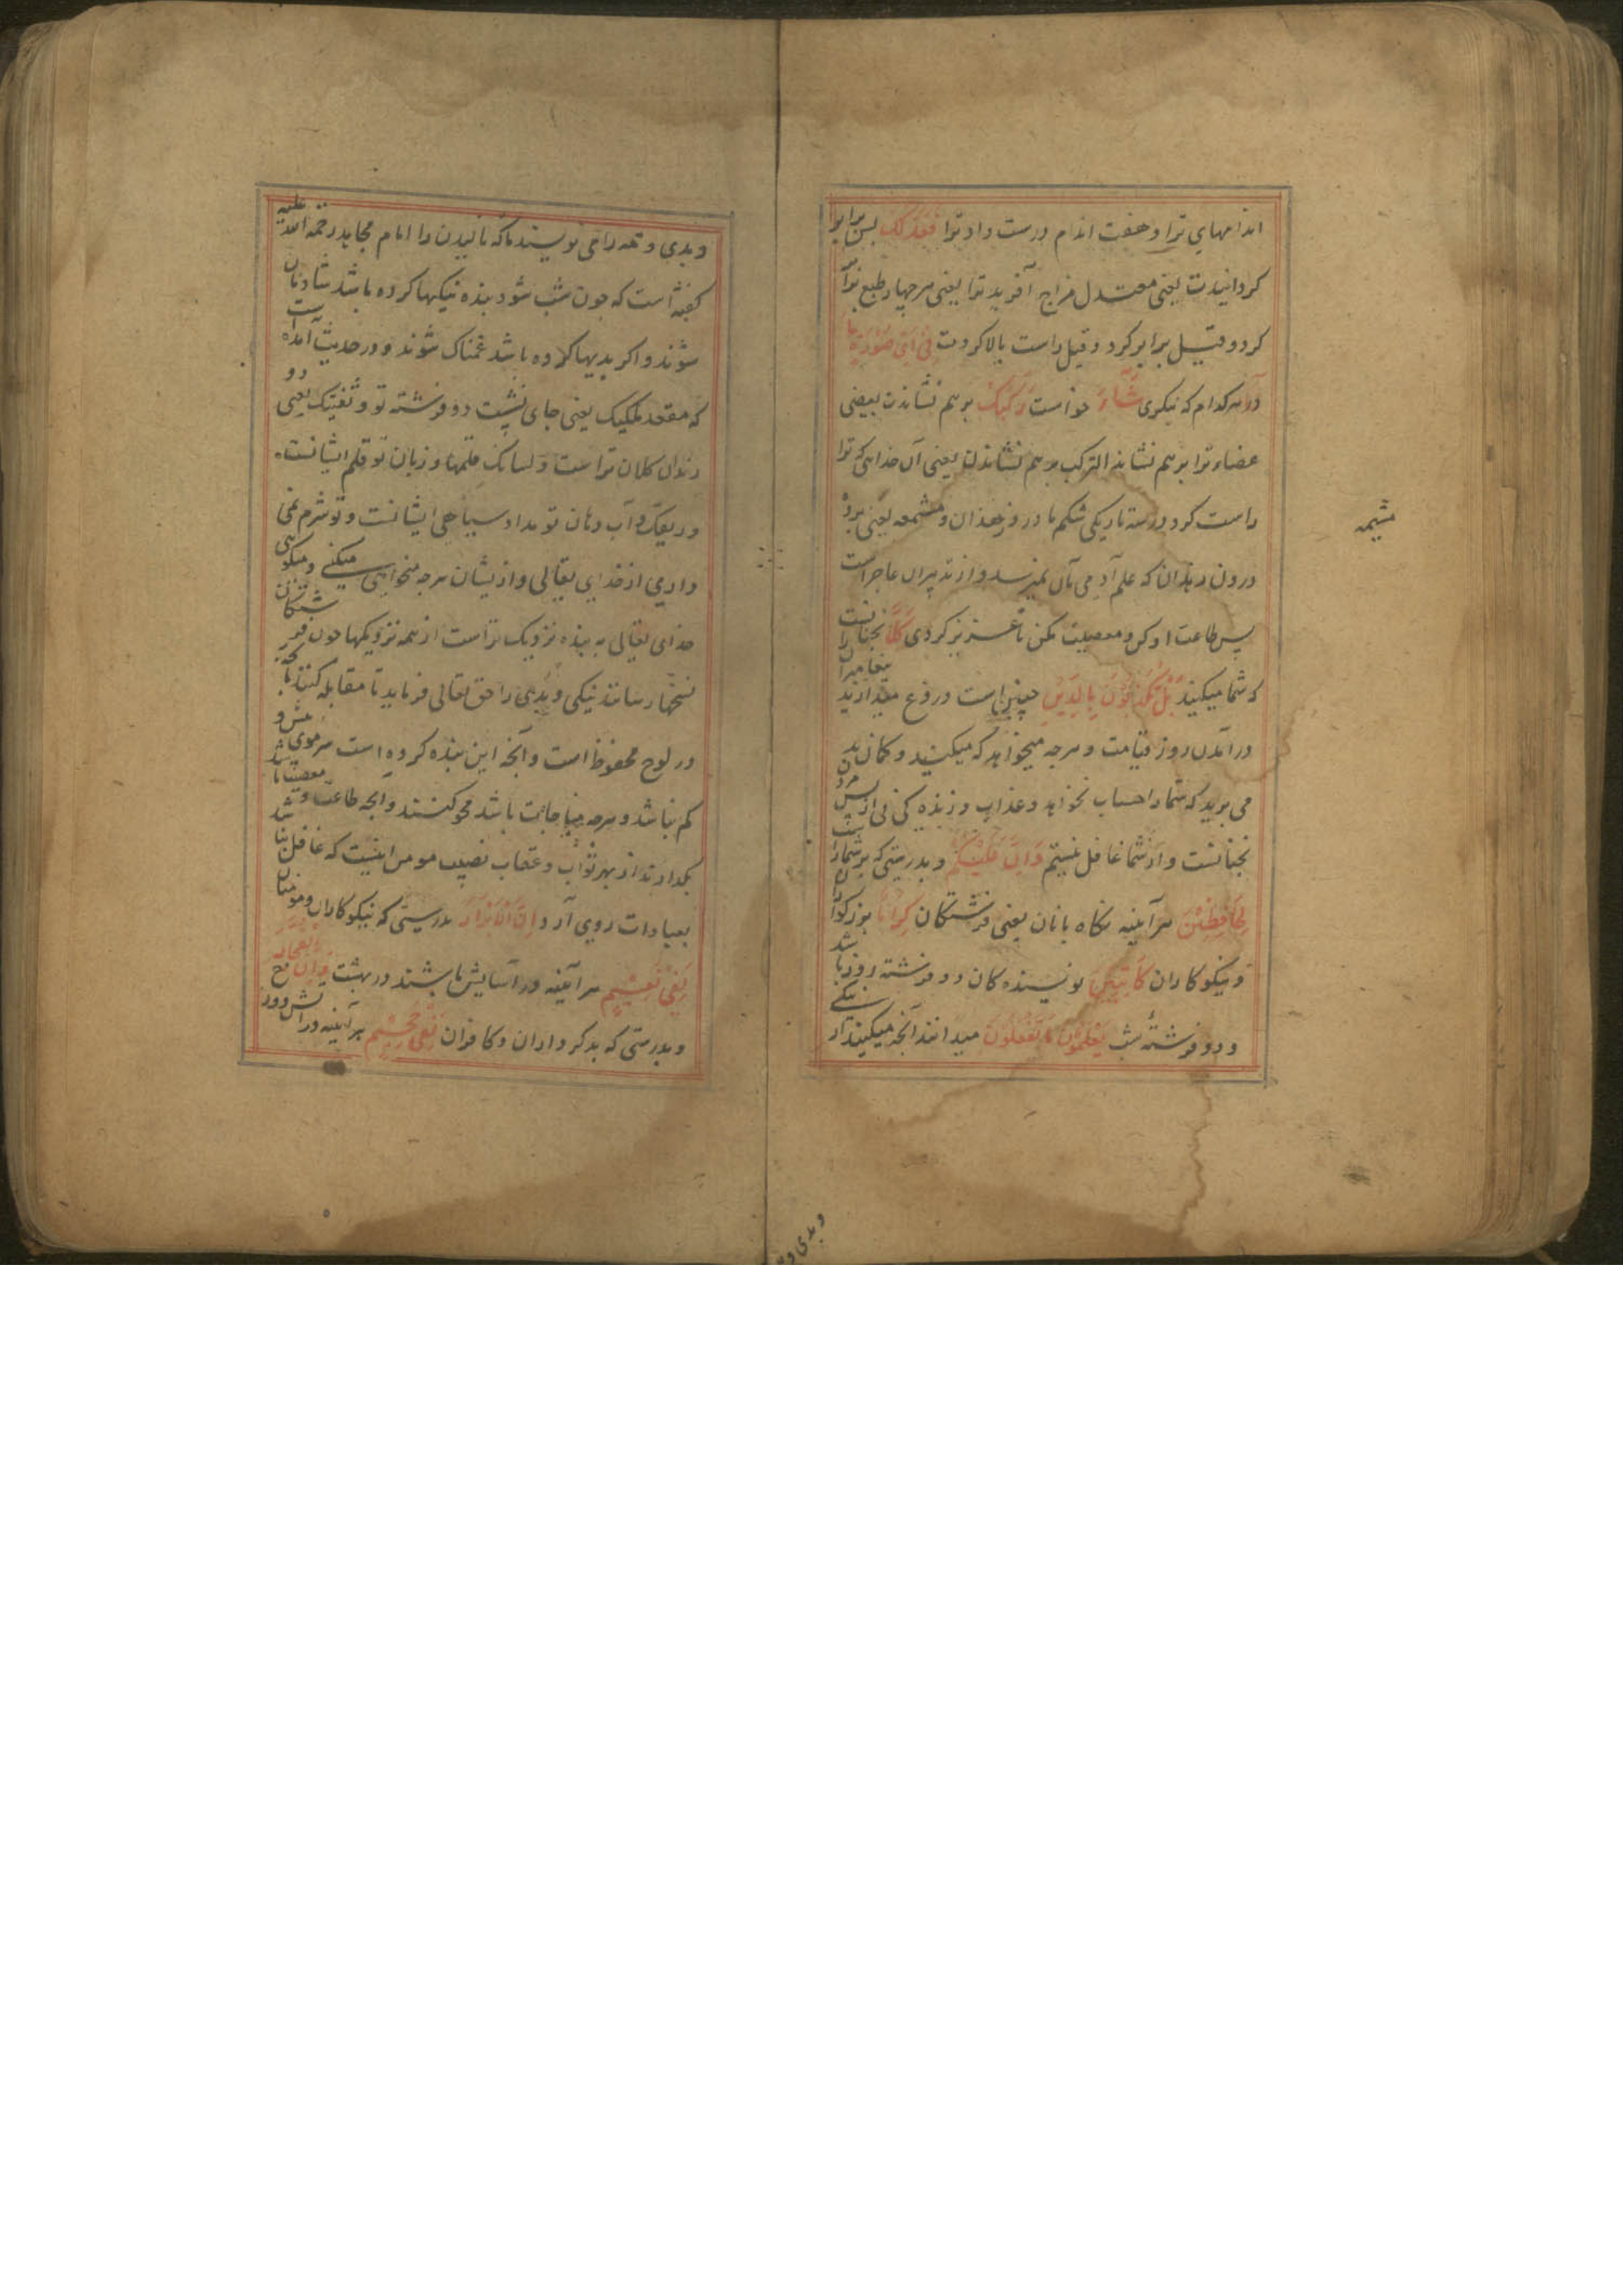 اندامهای ترا و هفت اندام درست داد ترا فعدلک پس برابر
کردانیدت یعنی معتدل مزاج آفرید ترا یعنی هر چهار طبع ترا
کرد و قیل برابر کرد و قیل راست بالا کردت فی ای صورة ما
در هر کدام که نیکوی شاء خواست رکبک بر هم نشاندت بعضی
عضاء ترا بر هم نشاند الترکیب بر هم نشاندن یعنی آن خدایی که ترا
راست کرد در سه تاریکی شکم مادر و زهدان و مشمعه یعنی پرده
درون زهدان که علم آدمی بآن نمیرسد و از تدبیر آن عاجز است
پس طاعت او کن و معصیت مکن تا عزیز کردی کلا نچنانست
که شما میکنید بل تکذبون بالدین بیغامبران را دروغ میدارید
در آمدن روز قیامت و هرچه میخواهد که میکنید و کمان بد
می برید که شما را حساب نخواهد و عذاب و زنده کنی نی از پس مرد
نچنانست و از شما غافل نیستم وان علیکم و بدرستی که بر شما
لحافظین هرآینه نکاه بانان یعنی فرشتکان کراما بزرکواران
و نیکوکاران کاتبین نویسنده کان دو فرشته روز باشد
و دو فرشتهٔ شب یعلمون ما تفعلون میدانند آنچه میکنید از نیکی
مشیمه
و بدی و
و بدی و همه را می نویسند تا که نالیدن را امام مجاهد رحمة الله علیه
کفته است که چون شب شود بنده نیکیها کرده باشد شادمان
شوند و اکر بدیها کرده باشد غمناک شوند و در حدیث آمده است
که مقعد ملکیک یعنی جای نشست دو فرشته تو و ثنیتیک یعنی دو
دندان کلان تراست و لسانک قلمها و زبان تو قلم ایشانست
و ریقک و آب دهان تو مداد سیاهی ایشانست و تو شرم نمی
داری از خدای تعالی و از ایشان هرچه میخواهی میکنی و میکوی
خدای تعالی به بنده نزدیک تراست از همه نزدیکها چون فرشتکان
نسخها رسانند نیکی و بدی را حق تعالی فرماید تا مقابله کنند با آنچه
در لوح محفوظ است و آنچه این بنده کرده است سر موی بیش و
کم نباشد و هرچه مباحات باشد محو کنند و آنچه طاعت و معصیت باشد
بکذارند از بهر ثواب و عقاب نصیب مومن اینست که غافل نباشد
بعبادات روی آرد ان الابرار بدرستی که نیکوکاران و مومنان
لفی نعیم هرآینه در آسایش باشند در بهشت وان الفجار
و بدرستی که بدکرداران و کافران لفی جحیم هرآینه در آتش دوزخ